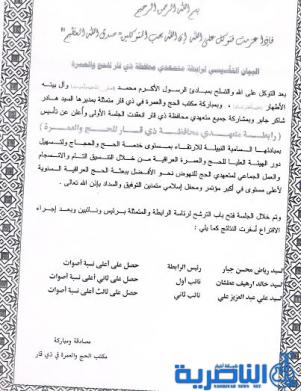 بسم الله الرحمن الرحيم
فإذا عزمت فتوكل على الله إن الله يحب المتوكلين" صدق الله العظيم"
البيان التأسيسي لرابطة متعهدي محافظة ذي قار للحج والعمرة
بعد التوكل على الله والتسلح بمبادئ الرسول الأكرم محمد وآل بيته
الأطهار وبمباركة مكتب الحج والعمرة في ذي قار متمثلة بمديرها السيد
شاكر جابر وبمشاركة جميع متعهدي محافظة ذي قار انعقدت الجلسة الأولى وأعلن عن تأسيس
( رابطة متعهدي محافظة ذي قار للحج والعمرة )
بمبادئها السامية النبيلة للارتقاء بمستوى خدمة الحج والحجاج ولتسهيل
دور الهيئة العليا للحج والعمرة العراقية من خلال التنسيق التام والانسجام
والعمل الجماعي لمتعهدي الحج للنهوض نحو الأفضل ببعثة الحج العراقية السنوية
على مستوى في أكبر مؤتمر ومحفل إسلامي متمنين التوفيق والسداد بإذن الله تعالى .
وتم خلال الجلسة فتح باب الترشح لرئاسة الرابطة والمتمثلة برئيس ونائبين وبعد إجراء
الاقتراع أسفرت النتائج كما يلي :
السيد رياض محسن جبار رئيس الرابطة حصل على أعلى نسبة أصوات
السيد خالد ارهيف عطشان نائب أول حصل على ثاني أعلى نسبة أصوات
السيد علي عبد العزيز علي نائب ثاني حصل على ثالث أعلى نسبة أصوات
مصادقة ومباركة
مكتب الحج والعمرة في ذي قار
شبكة أخبار
الناصرية